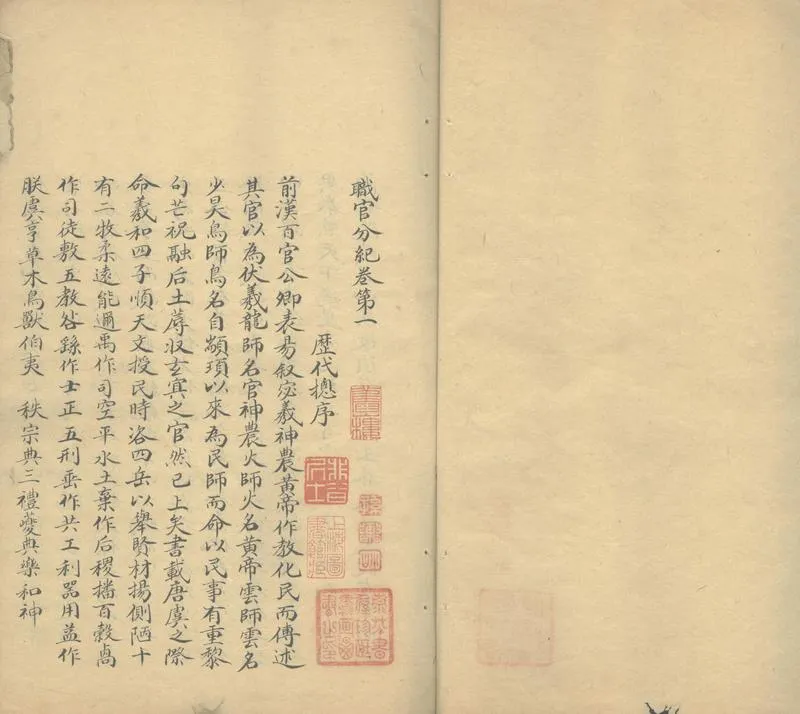 職官分紀卷第一
歷代摠序
前漢百官公卿表昜叙宓羲神農黃帝作敎化民而傳述
其官以為伏羲龍師名官神農火師火名黃帝雲師雲名
少昊鳥師鳥名自顓頊以來為民師而命以民事有重黎
句芒祝融后土蓐収玄冥之官然已上矣書載唐虞之際
命羲和四子順天文授民時洛四岳以舉賢材揚側陋十
有二牧柔遠能邇禹作司空平水土棄作后稷播百穀卨
作司徒敷五敎咎繇作士正五刑垂作共工利器用益作
朕虞亨草木鳥獸伯夷 秩宗典三禮夔典樂和神
書樓
上海圖
書館藏